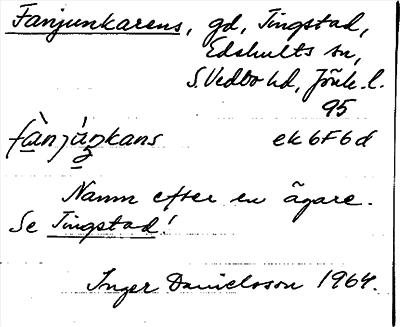 Fanjunkarens, gd, Tingstad,
Edshults sn,
S. Vedbo hd, Jönk. l.
95
fànjúŋkans ek 6F6d
Namn efter en ägare.
Se Tingstad!
Inger Danielsson 1964.